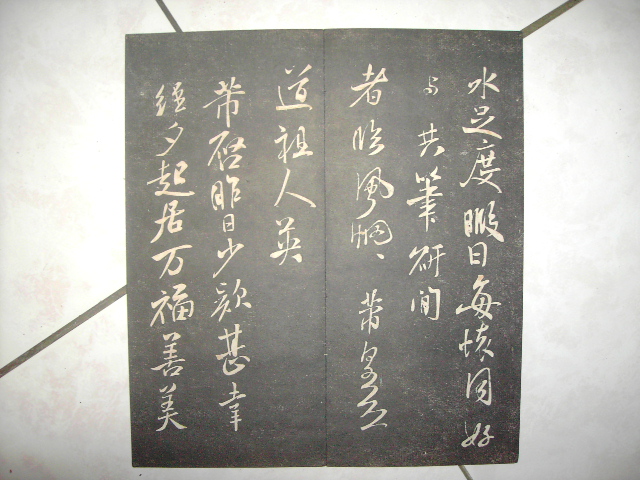 水足度暇日每懷同好
与共筆研間
者臨風惘〻芾皇恐
道祖人英
芾啓昨日少款甚幸
經夕起居万福善美